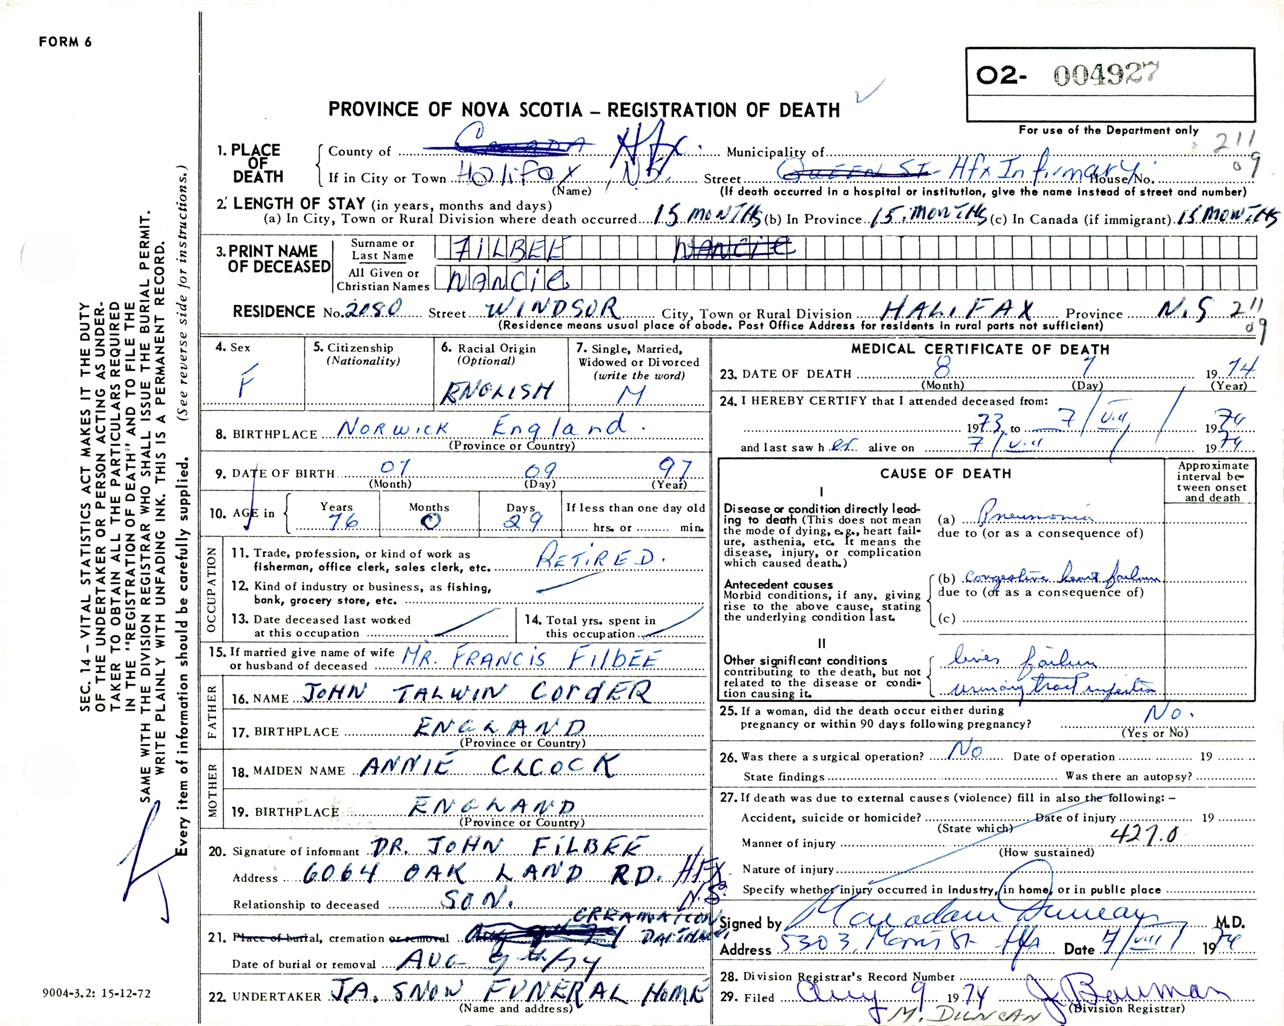 FORM 6
O2- 004927
PROVINCE OF NOVA SCOTIA – REGISTRATION OF DEATH
For use of the Department only
211
09
1. PLACE OF DEATH
County of Canada Hfx. Municipality of
If in City or Town Halifax, NS Street Queen St Hfx Infirmary House No.
(Name) (If death occurred in a hospital or institution, give the name instead of street and number)
2. LENGTH OF STAY (in years, months and days)
(a) In City, Town or Rural Division where death occurred 15 MONTHS (b) In Province 15 MONTHS (c) In Canada (if immigrant) 15 MONTHS
3. PRINT NAME OF DECEASED
Surname or Last Name FILBEE NANCIE
All Given or Christian Names NANCIE
RESIDENCE No. 2080 Street WINDSOR City, Town or Rural Division HALIFAX Province N.S
(Residence means usual place of abode. Post Office Address for residents in rural parts not sufficient)
211
09
4. Sex
F
5. Citizenship
(Nationality)
6. Racial Origin
(Optional)
ENGLISH
7. Single, Married, Widowed or Divorced
(write the word)
M
8. BIRTHPLACE NORWICK England.
(Province or Country)
9. DATE OF BIRTH 07 09 97
(Month) (Day) (Year)
10. AGE in Years Months Days If less than one day old
76 0 29 hrs. or min.
OCCUPATION
11. Trade, profession, or kind of work as fisherman, office clerk, sales clerk, etc. RETIRED.
12. Kind of industry or business, as fishing, bank, grocery store, etc.
13. Date deceased last worked at this occupation
14. Total yrs. spent in this occupation
15. If married give name of wife or husband of deceased MR. FRANCIS FILBEE
FATHER
16. NAME JOHN TALWIN CORDER
17. BIRTHPLACE ENGLAND
(Province or Country)
MOTHER
18. MAIDEN NAME ANNIE CLCOCK
19. BIRTHPLACE ENGLAND
(Province or Country)
20. Signature of informant DR. JOHN FILBEE
Address 6064 OAK LAND RD. HFX N.S.
Relationship to deceased SON.
CREAMATION
21. Place of burial, cremation or removal
Date of burial or removal AUG 9th/74
22. UNDERTAKER JA. SNOW FUNERAL HOME
(Name and address)
MEDICAL CERTIFICATE OF DEATH
23. DATE OF DEATH 8 7 1974
(Month) (Day) (Year)
24. I HEREBY CERTIFY that I attended deceased from:
1973 to 7/VIII/ 1974
and last saw her alive on 7/VIII 1974
CAUSE OF DEATH
Approximate interval between onset and death
I
Disease or condition directly leading to death (This does not mean the mode of dying, e.g., heart failure, asthenia, etc. It means the disease, injury, or complication which caused death.)
(a) Pneumonia
due to (or as a consequence of)
Antecedent causes
Morbid conditions, if any, giving rise to the above cause, stating the underlying condition last.
(b) Congestive heart failure
due to (or as a consequence of)
(c)
II
Other significant conditions contributing to the death, but not related to the disease or condition causing it.
liver failure
urinary tract infection
25. If a woman, did the death occur either during pregnancy or within 90 days following pregnancy? No.
(Yes or No)
26. Was there a surgical operation? No Date of operation 19
State findings Was there an autopsy?
27. If death was due to external causes (violence) fill in also the following: –
Accident, suicide or homicide? Date of injury 19
(State which)
427.0
Manner of injury
(How sustained)
Nature of injury
Specify whether injury occurred in industry, in home, or in public place
Signed by Macadam Duncan M.D.
Address 5303 Morris St Hfx Date 7/VIII/ 1974
28. Division Registrar's Record Number
29. Filed Aug 9 1974 J. Bauman
M. DUNCAN (Division Registrar)
SEC. 14 – VITAL STATISTICS ACT MAKES IT THE DUTY
OF THE UNDERTAKER OR PERSON ACTING AS UNDER-
TAKER TO OBTAIN ALL THE PARTICULARS REQUIRED
IN THE "REGISTRATION OF DEATH" AND TO FILE THE
SAME WITH THE DIVISION REGISTRAR WHO SHALL ISSUE THE BURIAL PERMIT.
WRITE PLAINLY WITH UNFADING INK. THIS IS A PERMANENT RECORD.
Every item of information should be carefully supplied. (See reverse side for instructions.)
9004-3.2: 15-12-72